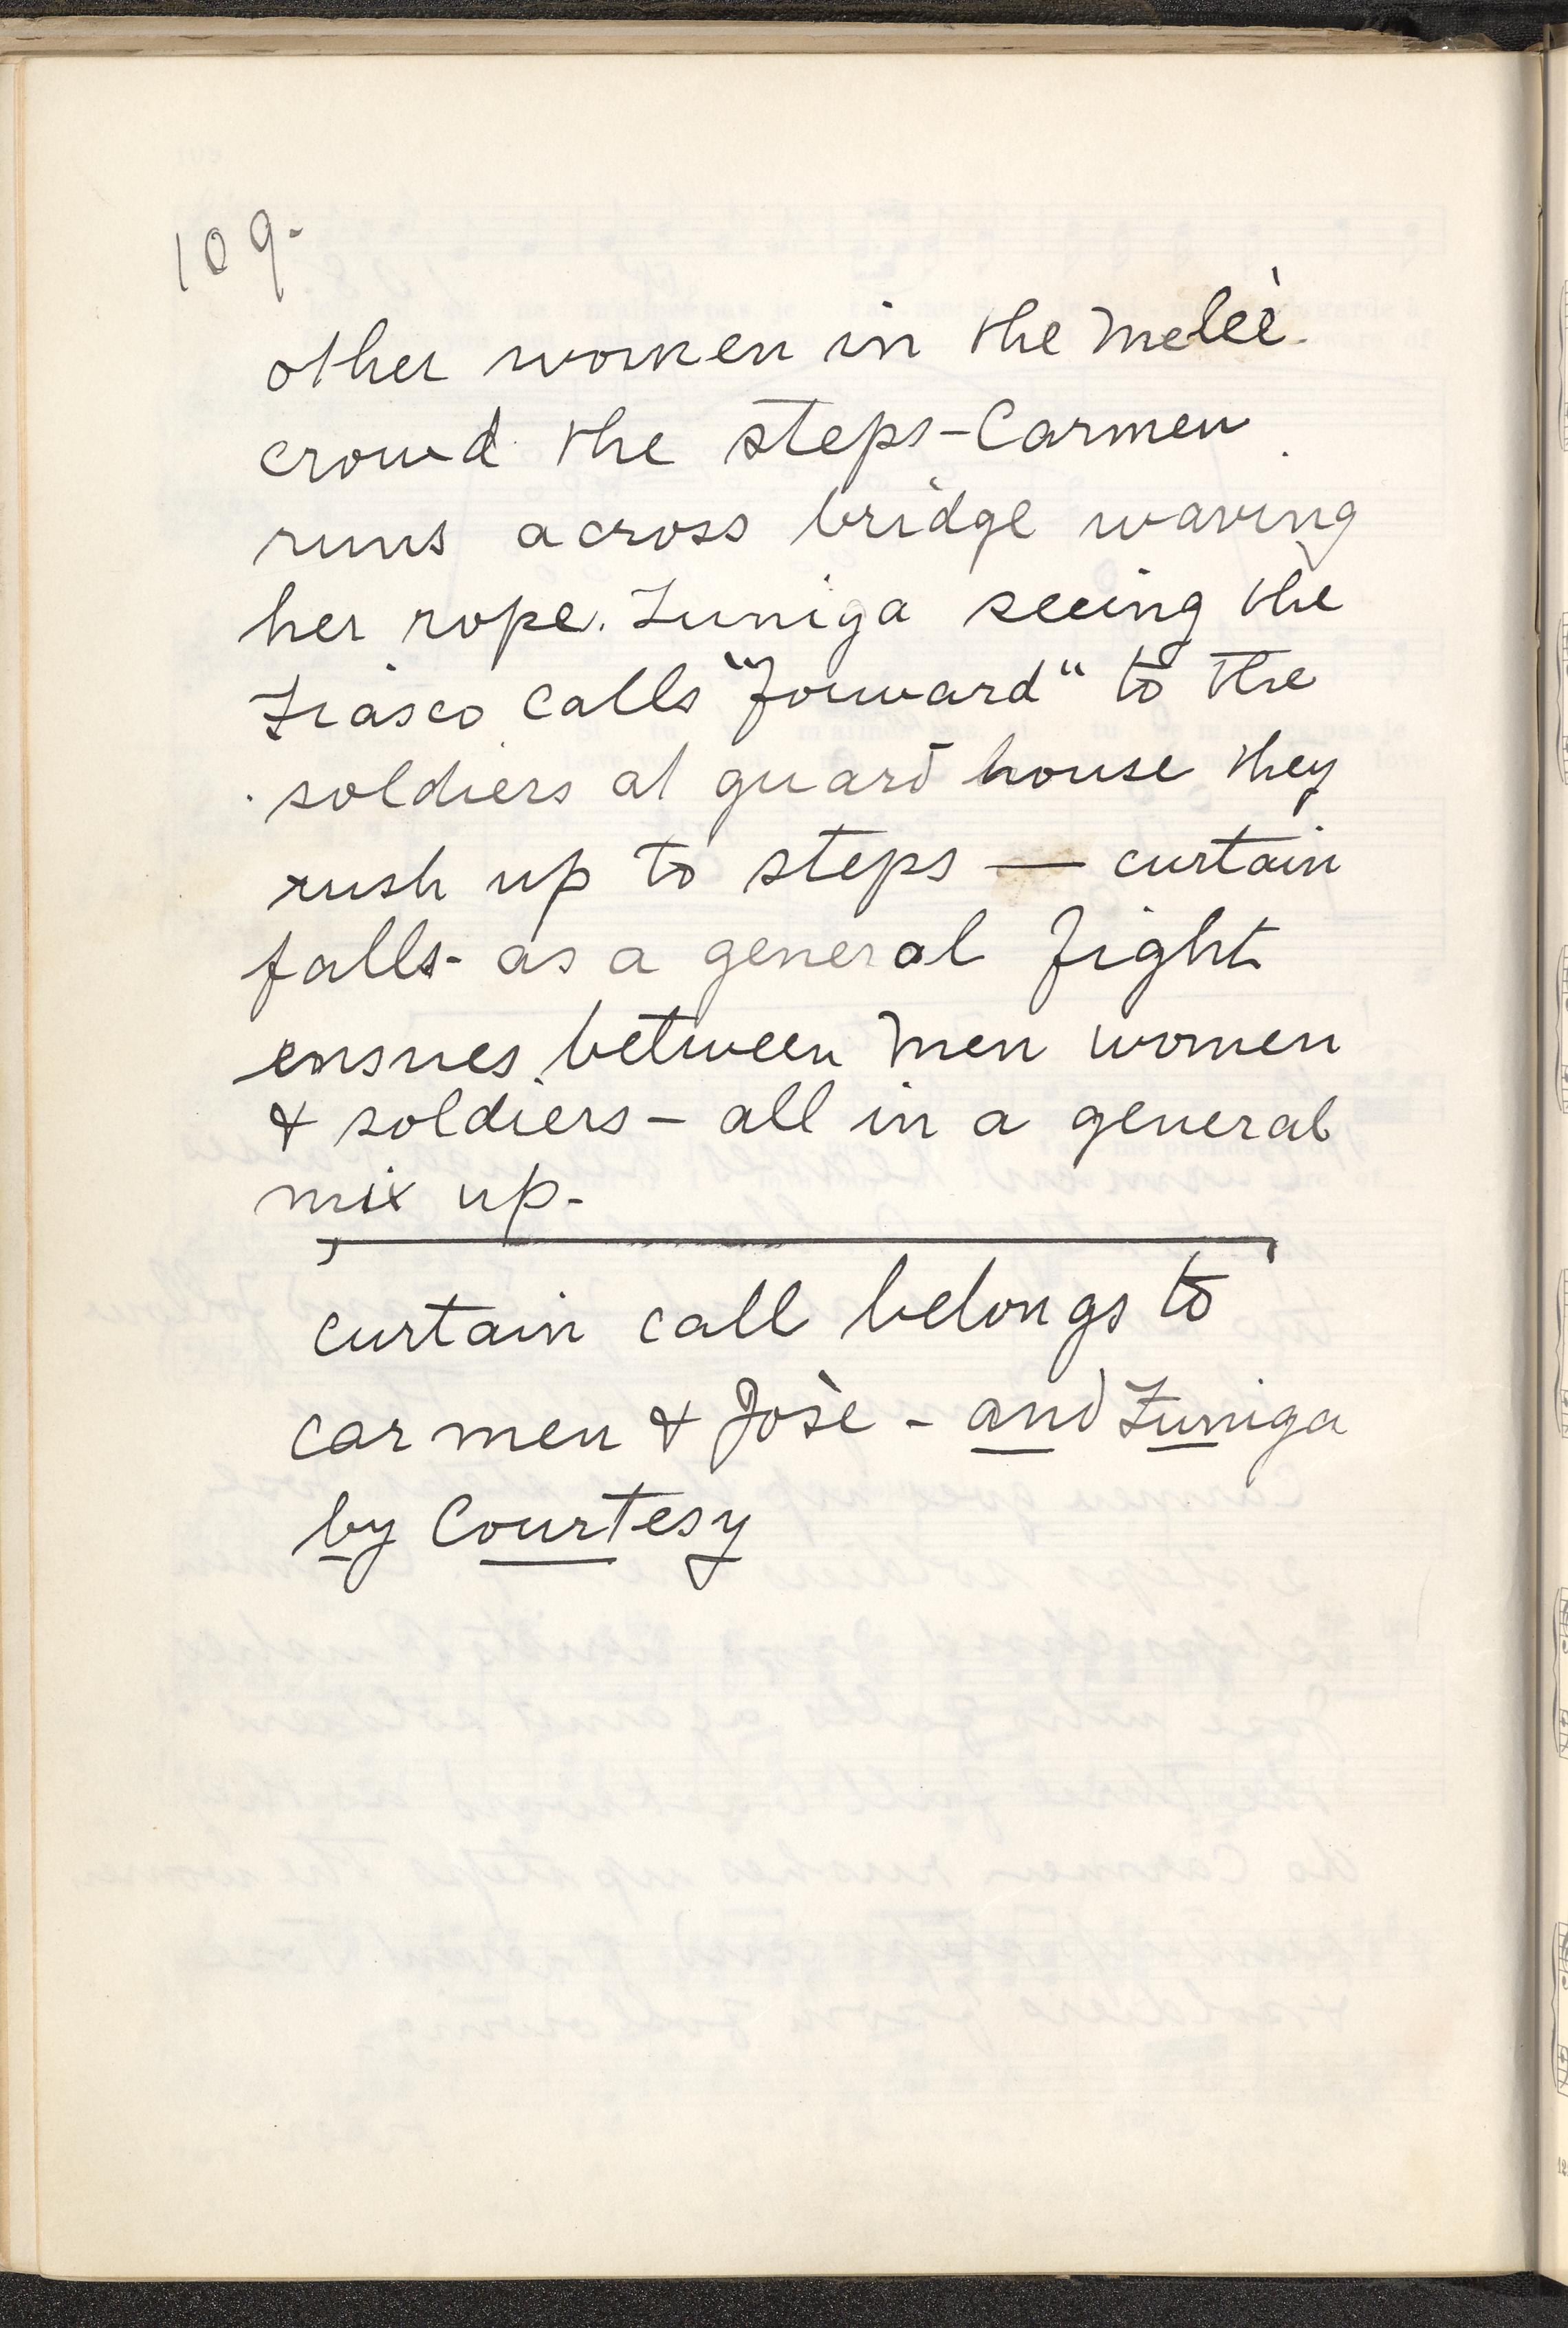 109.
other women in the Meleè.
crowd the steps - Carmen
runs across bridge waving
her rope. Zuniga seeing the
Fiasco calls "Forward" to the
soldiers at guard house they
rush up to steps — curtain
falls - as a general fight
ensues between Men women
& soldiers - all in a general
mix up -
curtain call belongs to
carmen & Josè - and Zuniga
by Courtesy